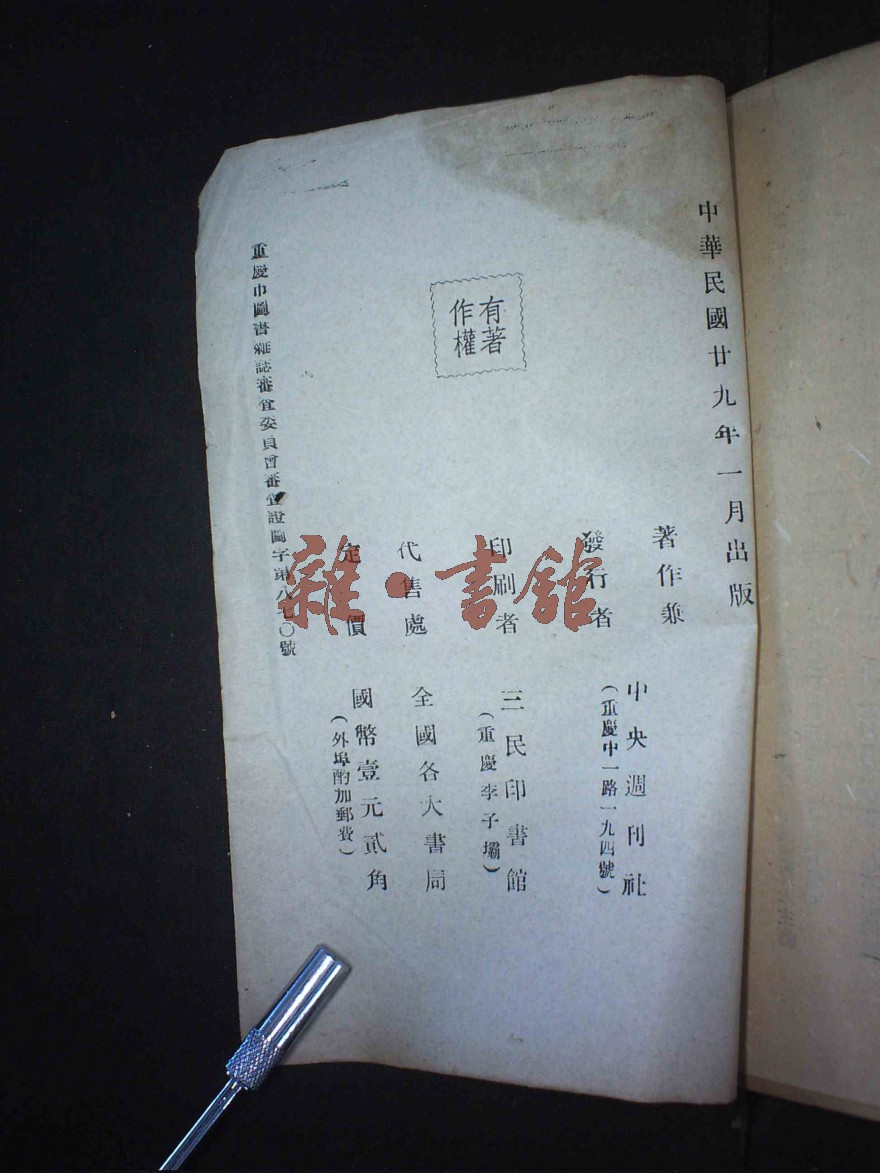 中華民國廿九年一月出版
有著
作權
著作兼
發行者
中央週刊社
(重慶中一路一九四號)
印刷者
三民印書館
(重慶李子壩)
代售處
全國各大書局
定價
國幣壹元貳角
(外埠酌加郵費)
重慶市圖書雜誌審查委員會審查證圖字第八七〇號
雜·書館